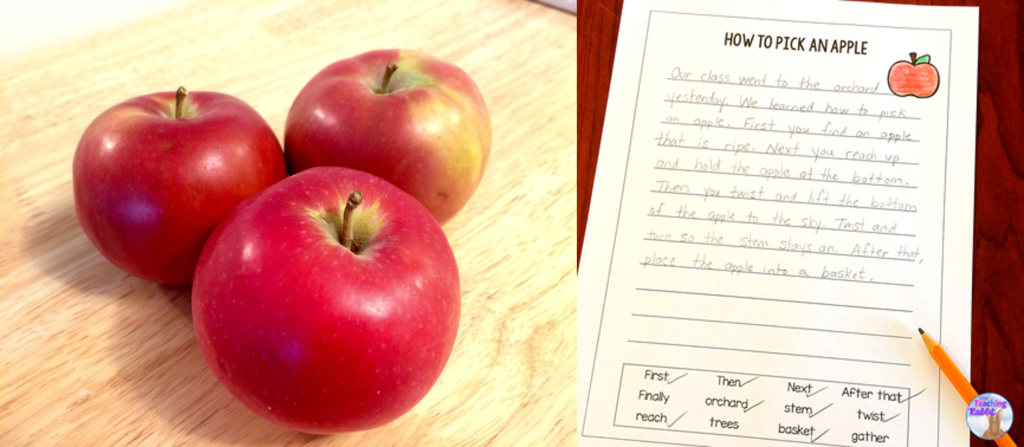 HOW TO PICK AN APPLE
Our class went to the orchard
yesterday. We learned how to pick
an apple. First you find an apple
that is ripe. Next you reach up
and hold the apple at the bottom.
Then you twist and lift the bottom
of the apple to the sky. Twist and
turn so the stem stays on. After that,
place the apple into a basket.
First Then Next After that
Finally orchard stem twist
reach trees basket gather
The
Teaching
Rabbit